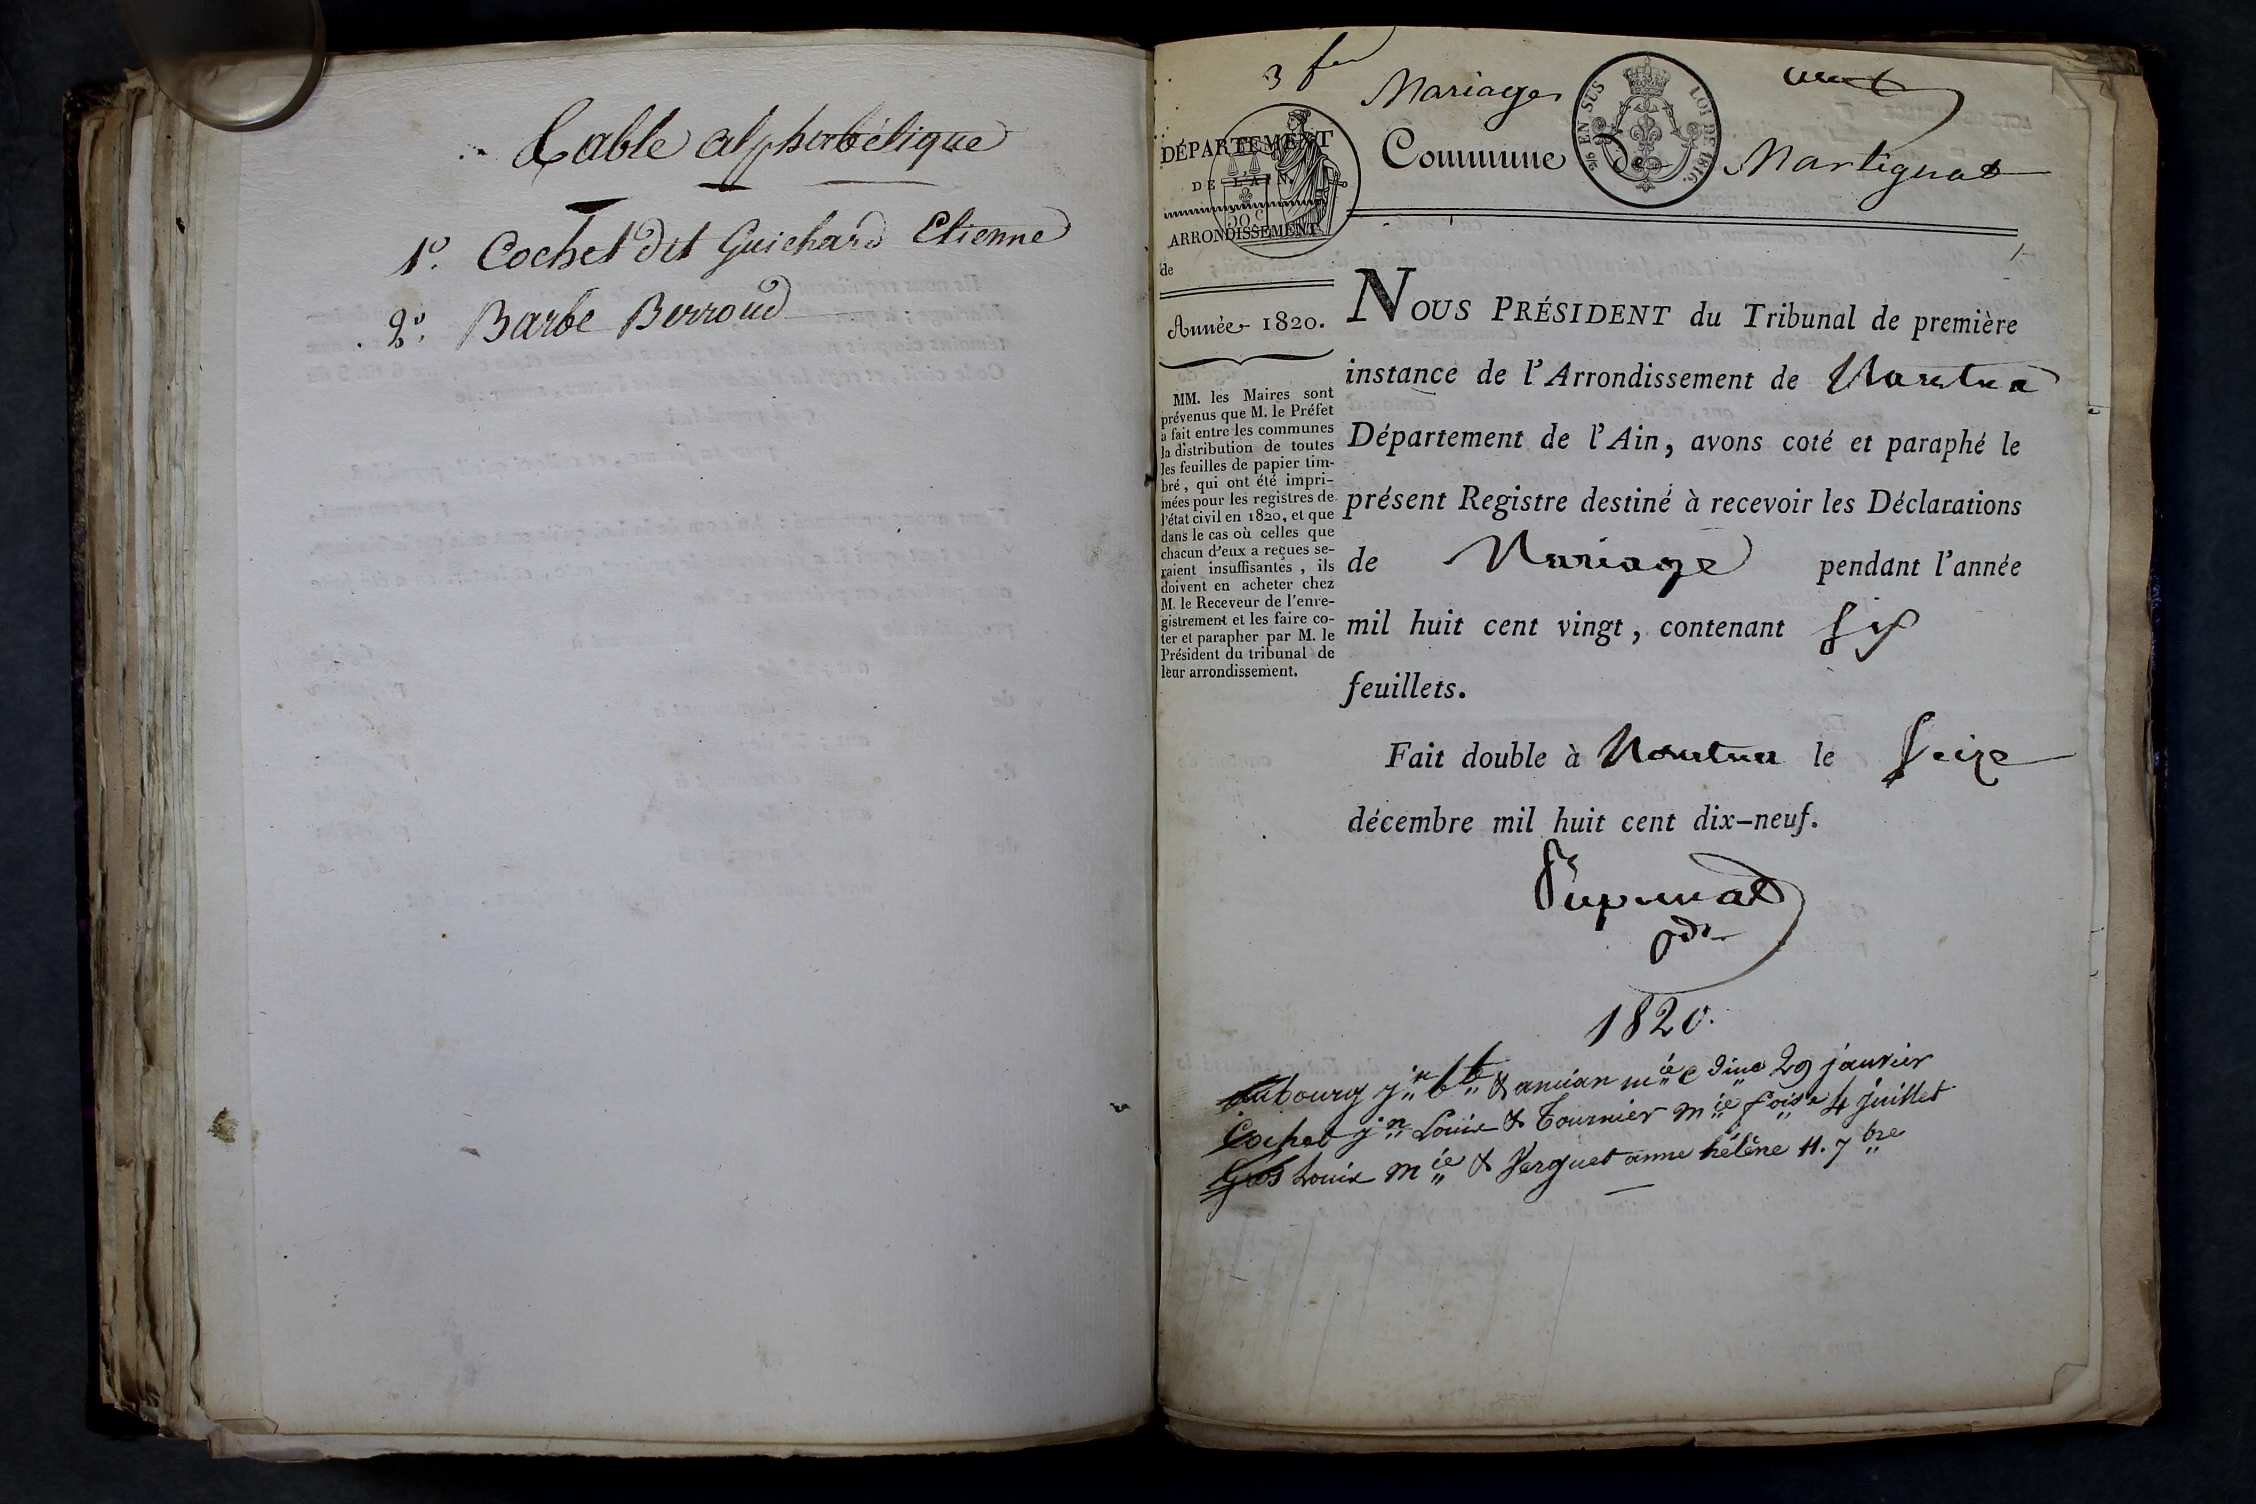 Table alphabétique
1º. Cochet dit Guichard Etienne
2º. Barbe Berroud
3 f
Mariages
DÉPARTEMENT
DE L'AIN.
30 C
ARRONDISSEMENT
de
Commune de Martignat
2/6 EN SUS LOI DE 1816.
Année 1820.
MM. les Maires sont
prévenus que M. le Préfet
a fait entre les communes
la distribution de toutes
les feuilles de papier tim-
bré, qui ont été impri-
mées pour les registres de
l'état civil en 1820, et que
dans le cas où celles que
chacun d'eux a reçues se-
raient insuffisantes, ils
doivent en acheter chez
M. le Receveur de l'enre-
gistrement et les faire co-
ter et parapher par M. le
Président du tribunal de
leur arrondissement.
NOUS PRÉSIDENT du Tribunal de première
instance de l'Arrondissement de Nantua
Département de l'Ain, avons coté et paraphé le
présent Registre destiné à recevoir les Déclarations
de Mariage pendant l'année
mil huit cent vingt, contenant six
feuillets.
Fait double à Nantua le seize
décembre mil huit cent dix-neuf.
1820.
Dubourg jn bte & mie 29 janvier
Cochet jn Louis & Tournier mie foise 4 juillet
Gros Louis mie & Verguet anne hélène 11. 7bre